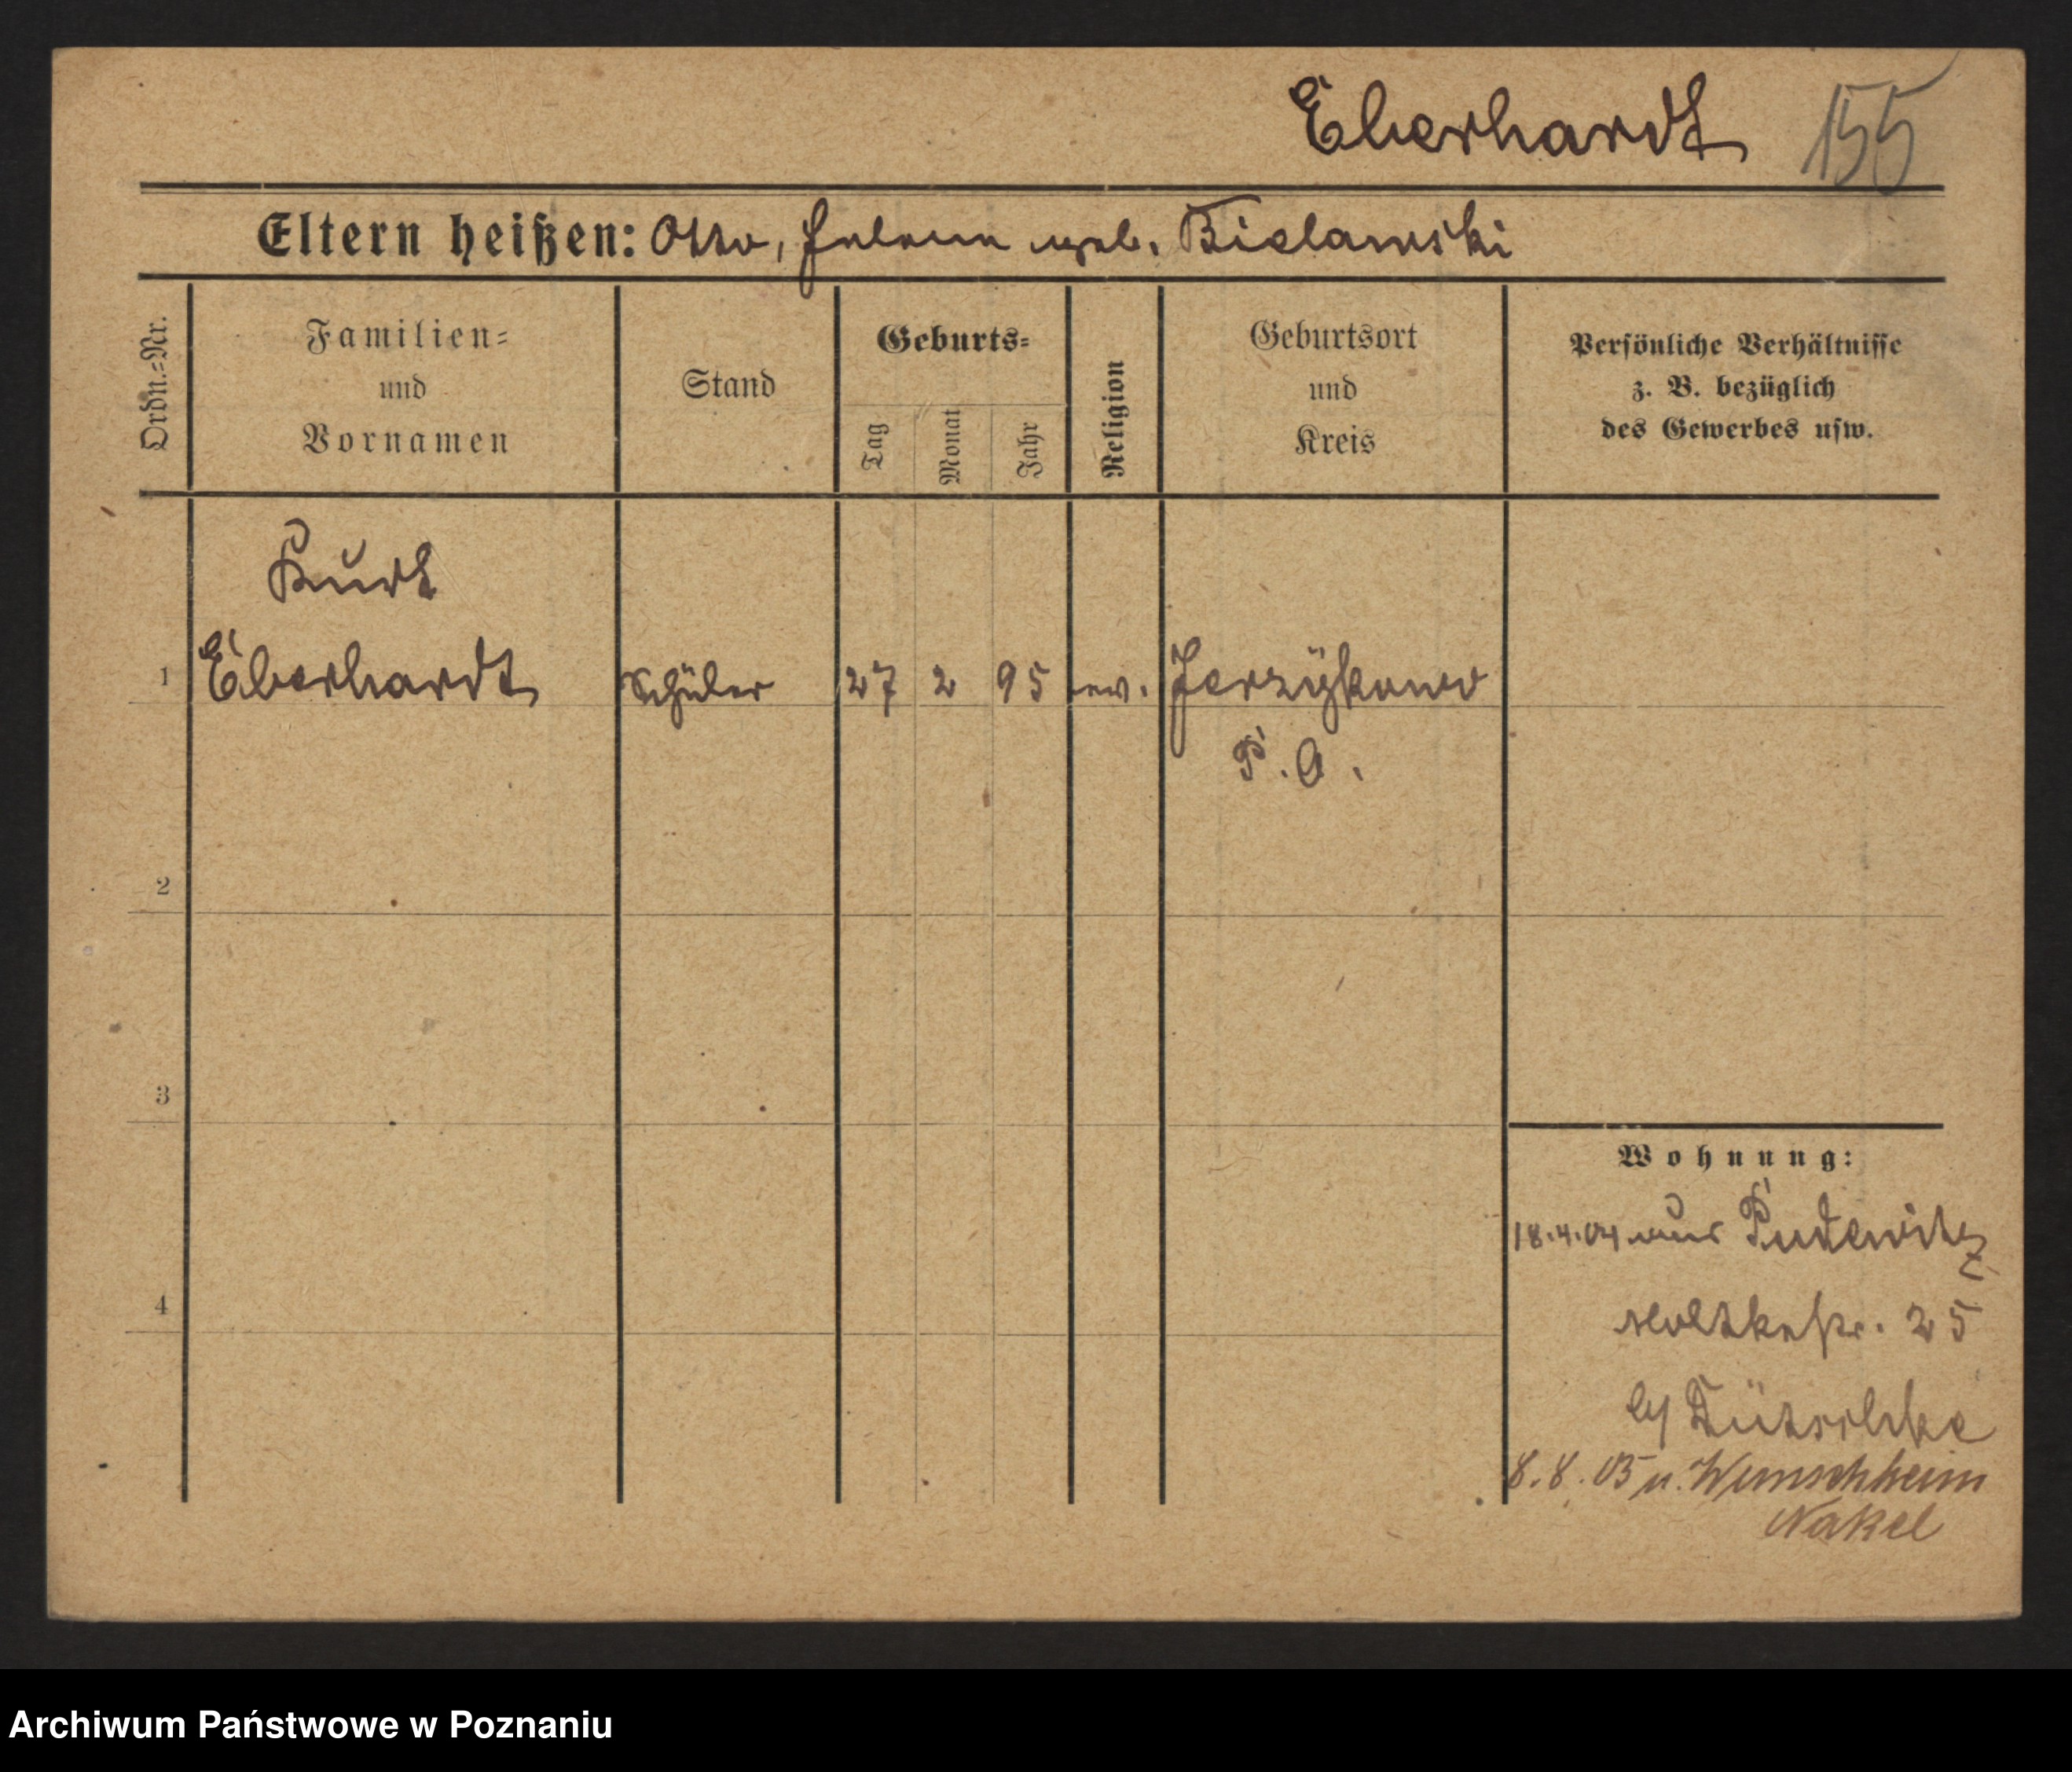 Eberhardt 155
Eltern heißen: Otto, Helene geb. Bielawski
Ordn.-Nr.
Familien-
und
Vornamen
Stand
Geburts-
Tag
Monat
Jahr
Religion
Geburtsort
und
Kreis
Persönliche Verhältnisse
z. B. bezüglich
des Gewerbes usw.
Kurt
1 Eberhardt Schüler 27 2 95 ev. Jerzykowo
P. O.
2
3
4
Wohnung:
18.4.04 aus Pudewitz
Moltkestr. 25
b/
8.8.05 n. Wunschheim
Nakel
Archiwum Państwowe w Poznaniu